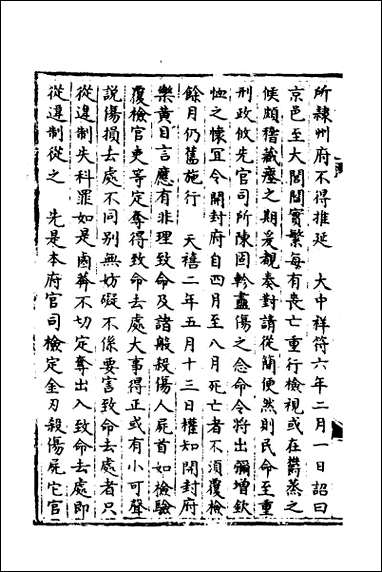 所隸州府不得推延　大中祥符六年二月一日詔曰
京邑至大閭閻實繁每有喪亡重行檢視或在欝蒸之
候頗稽藏瘞之期爰覩奏對請從簡便然則民命至重
刑政攸先官司所陳固軫盡傷之念命令將出彌增欽
恤之懷冝令開封府自四月至八月死亡者不須覆檢
餘月仍舊施行　天禧二年五月十三日權知開封府
樂黃目言應有非理致命及諸般殺傷人屍首如檢驗
覆檢官吏等定奪得致命去處大事得正或有小可聲
說傷損去處不同別無妨礙不係要害致命去處者只
從違制失科罪如是因循不切定奪出入致命去處即
從違制從之　先是本府官司檢定金刃殺傷屍它官